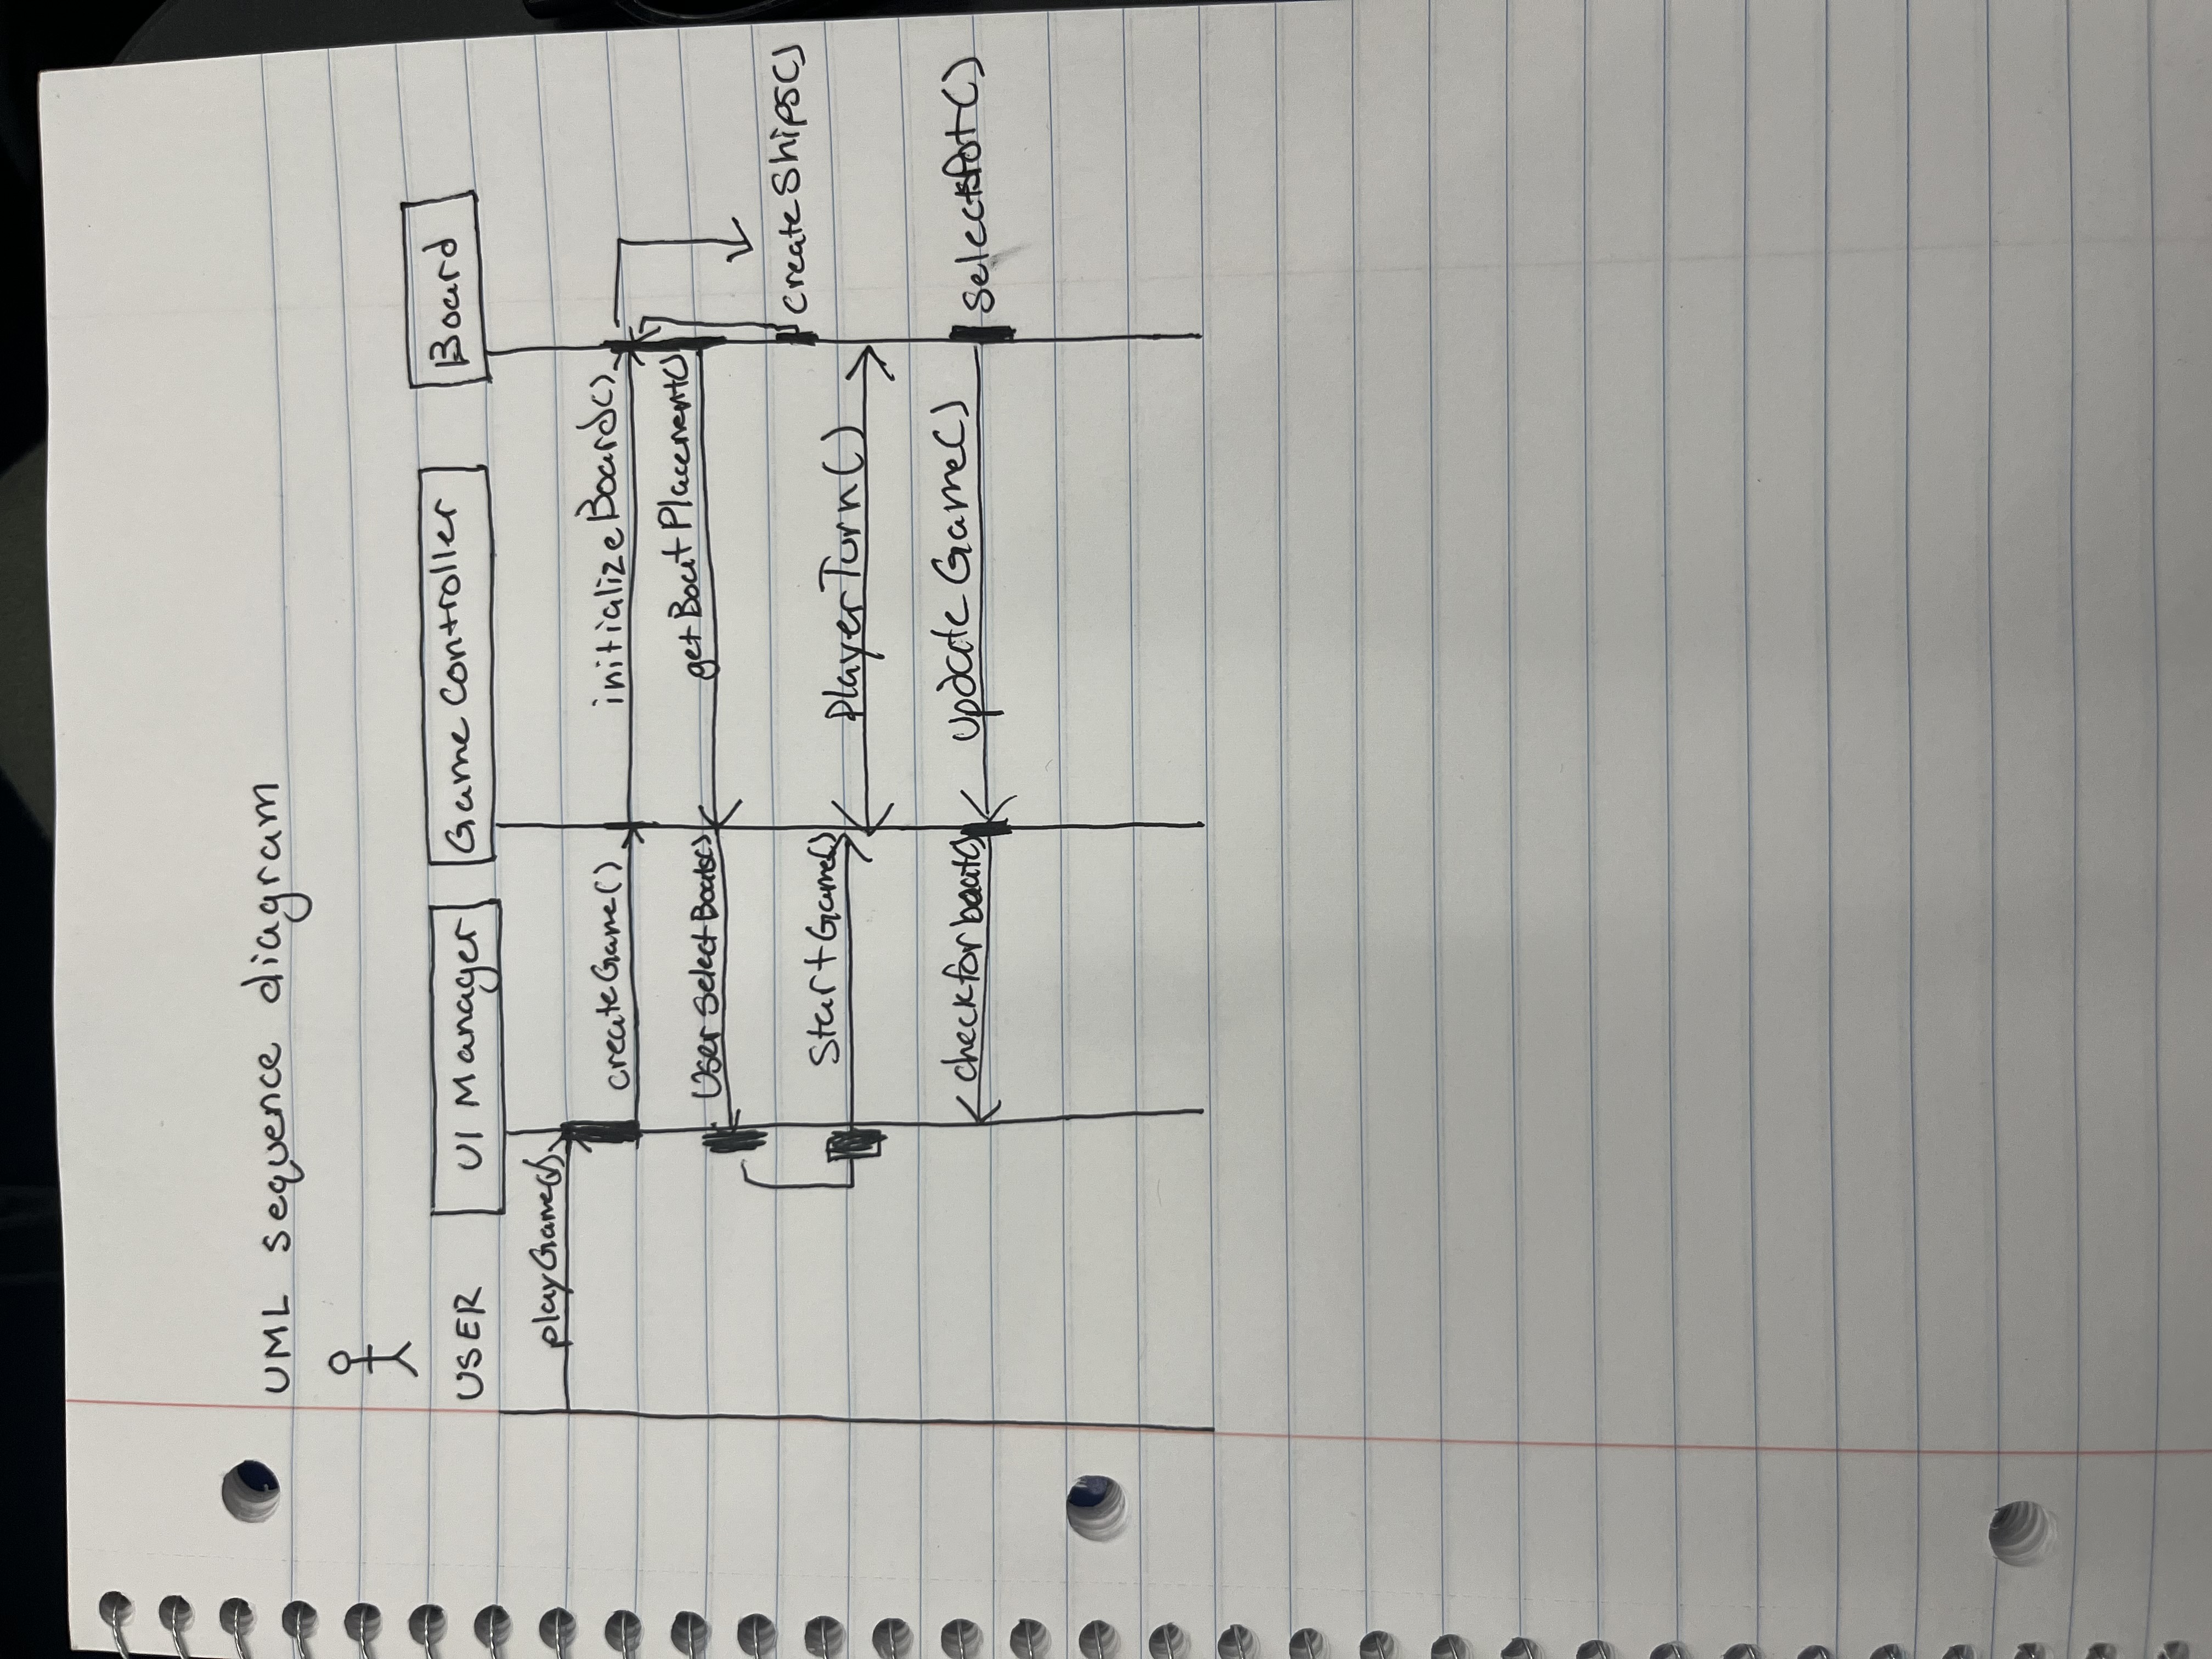 UML sequence diagram
USER
UI Manager
Game Controller
Board
playGame()
createGame()
initializeBoard()
getBoatPlacement()
User Select Boats()
createShips()
StartGame()
PlayerTurn()
checkforboat()
updateGame()
Selectspot()